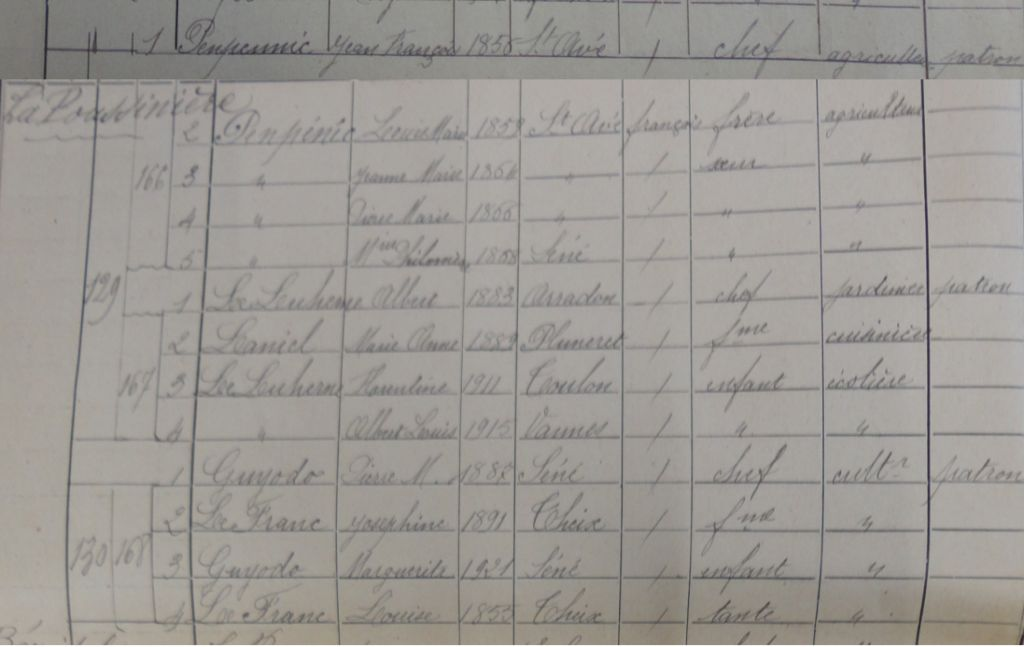 1 Penpennic Jean François 1856 St Avé / chef agriculteur patron
La Poussinière
2 Penpénic Louis Marie 1859 St Avé français frère agriculteur
166 3 " Jeanne Marie 1864 " / sœur "
4 " Marie 1866 " / " "
5 " Philomène Séné / " "
129 1 Le Luherne Albert 1883 Arradon / chef jardinier patron
2 Daniel Marie Anne Pluneret / fme cuisinière
167 3 Le Luherne Florentine 1911 Toulon / enfant écolière
4 " Albert Louis 1915 Vannes / " "
1 Guyodo Pierre M. 1887 Séné / chef cultr patron
2 Le Franc Josephine 1891 Theix / fme "
130 168 3 Guyodo Marguerite 1921 Séné / enfant "
4 Le Franc Louise 1855 Theix / tante "